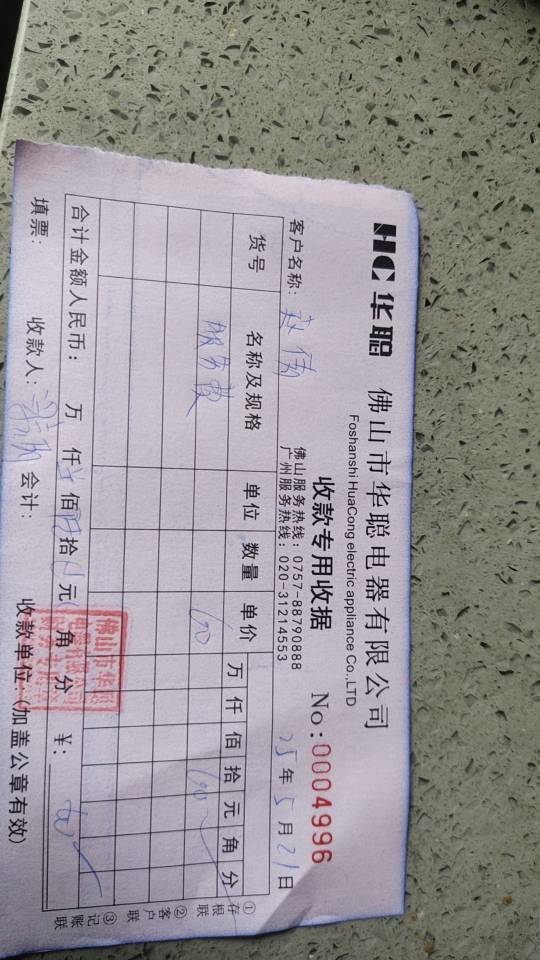 HC 华聪 佛山市华聪电器有限公司
Foshanshi HuaCong electric appliance Co.,LTD
收款专用收据 No:0004996
佛山服务热线：0757-88790888
广州服务热线：020-31214553
客户名称： 25年5月21日
货号 名称及规格 单位 数量 单价 万 仟 佰 拾 元 角 分
服务费 60 60
合计金额人民币： 万 仟 佰 拾 元 角 分 ¥:
填票： 收款人： 会计： 收款单位：(加盖公章有效)
①存根联 ②客户联 ③记账联
佛山市华聪
电器有限公司